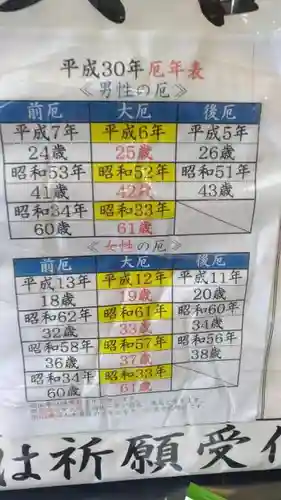 平成30年厄年表
≪男性の厄≫
前厄 大厄 後厄
平成7年 平成6年 平成5年
24歳 25歳 26歳
昭和53年 昭和52年 昭和51年
41歳 42歳 43歳
昭和34年 昭和33年
60歳 61歳
≪女性の厄≫
前厄 大厄 後厄
平成13年 平成12年 平成11年
18歳 19歳 20歳
昭和62年 昭和61年 昭和60年
32歳 33歳 34歳
昭和58年 昭和57年 昭和56年
36歳 37歳 38歳
昭和34年 昭和33年
60歳 61歳
は祈願受付